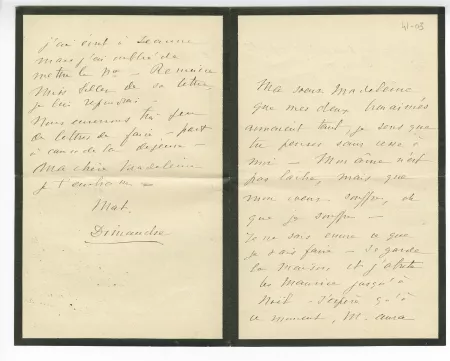 41-03
Ma sœur Madeleine
que mes deux bien aimés
aimaient tant, je sens que
tu penses sans cesse à
moi — Mon âme n'est
pas lâche, mais que
mon cœur souffre, oh
que je souffre —
Je ne sais encore ce que
je vais faire — Je garde
la maison et j'abrite
les Maurice jusqu'à
Noël — J'espère qu'à
ce moment, M. aura
j'ai écrit à Jeanne
mais j'ai oublié de
mettre le No — Remercie
Miss de sa lettre,
je lui répondrai —
Nous enverrons très peu
de lettres de faire-part
à cause de la dépense —
Ma chère Madeleine
je t'embrasse
Mat.
Dimanche